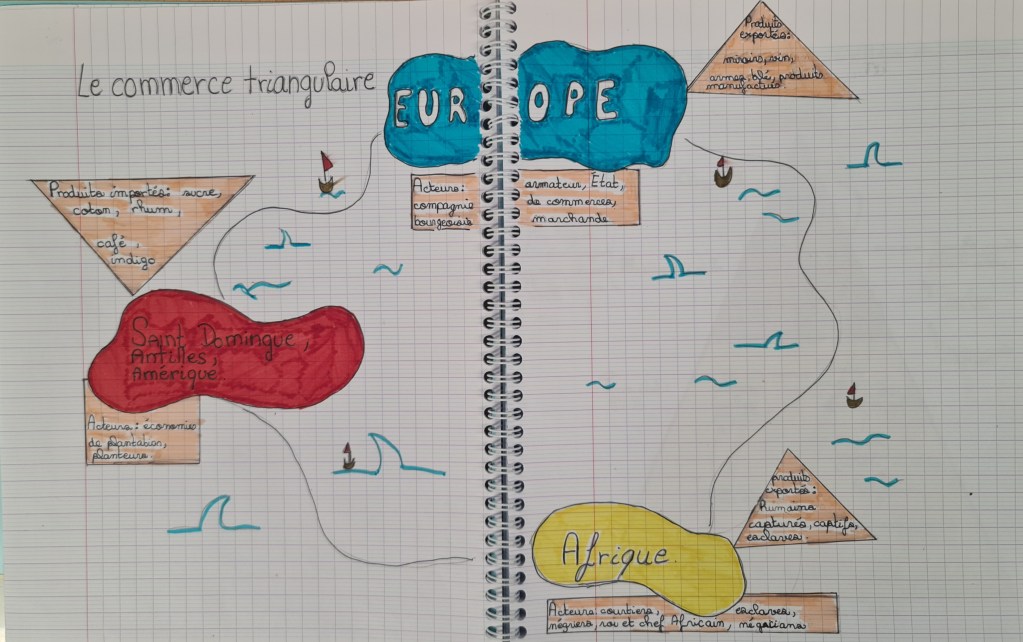 Le commerce triangulaire
EUROPE
Produits
exportés:
miroirs, vin,
armes, blé, produits
manufacturés.
Acteurs: armateur, État,
compagnie de commerces,
bourgeoisie marchande
Produits importés: sucre,
coton, rhum,
café,
indigo
Saint Domingue,
Antilles,
Amérique
Acteurs: économies
de plantation,
planteurs.
produits
exportés:
humains
capturés, captifs,
esclaves.
Afrique
Acteurs: courtiers, esclaves,
négriers, roi et chef Africain, négocians